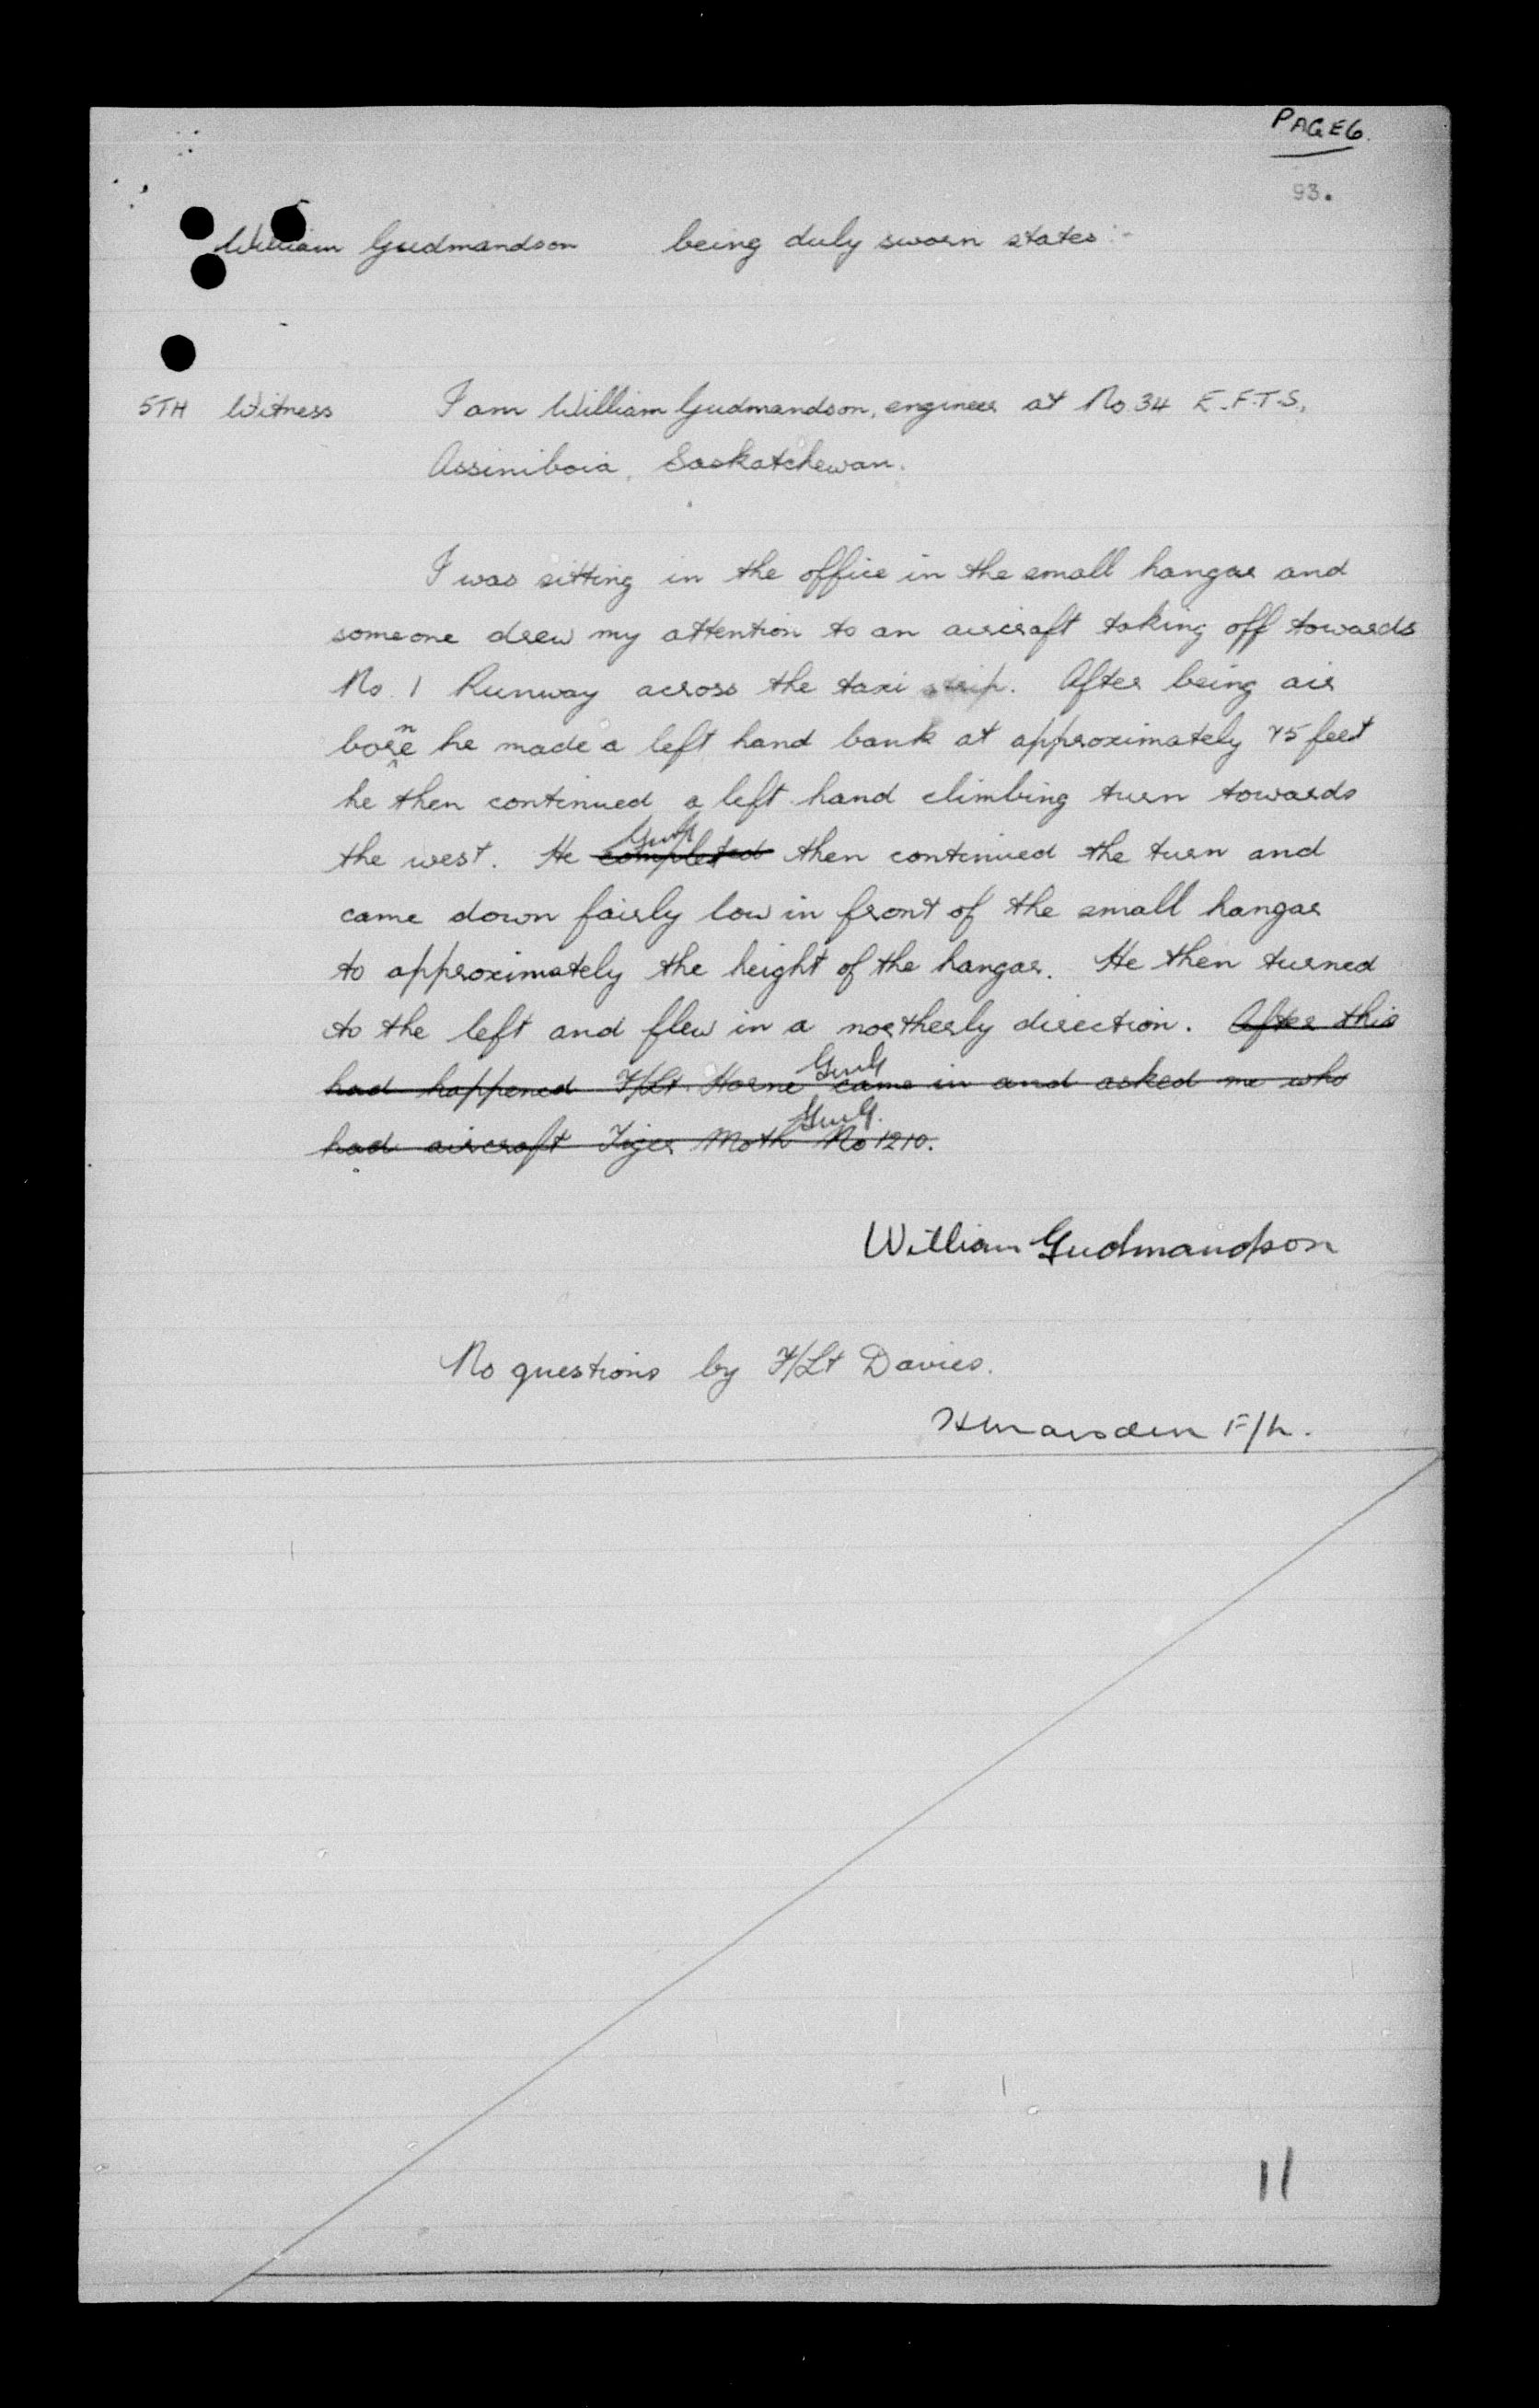 PAGE 6.
93.
William Gudmandson being duly sworn states:-
5TH Witness I am William Gudmandson, engineer at No. 34 E.F.T.S.,
Assiniboia, Saskatchewan.
I was sitting in the office in the small hangar and
someone drew my attention to an aircraft taking off towards
No. 1 Runway across the taxi strip. After being air
borne he made a left hand bank at approximately 75 feet
he then continued a left hand climbing turn towards
the west. He completed then continued the turn and
came down fairly low in front of the small hangar
to approximately the height of the hangar. He then turned
to the left and flew in a northerly direction. After this
had happened F/Lt. Horne came in and asked me who
had aircraft Tiger Moth No 1210.
William Gudmandson
No questions by F/Lt Davies.
F/L.
11